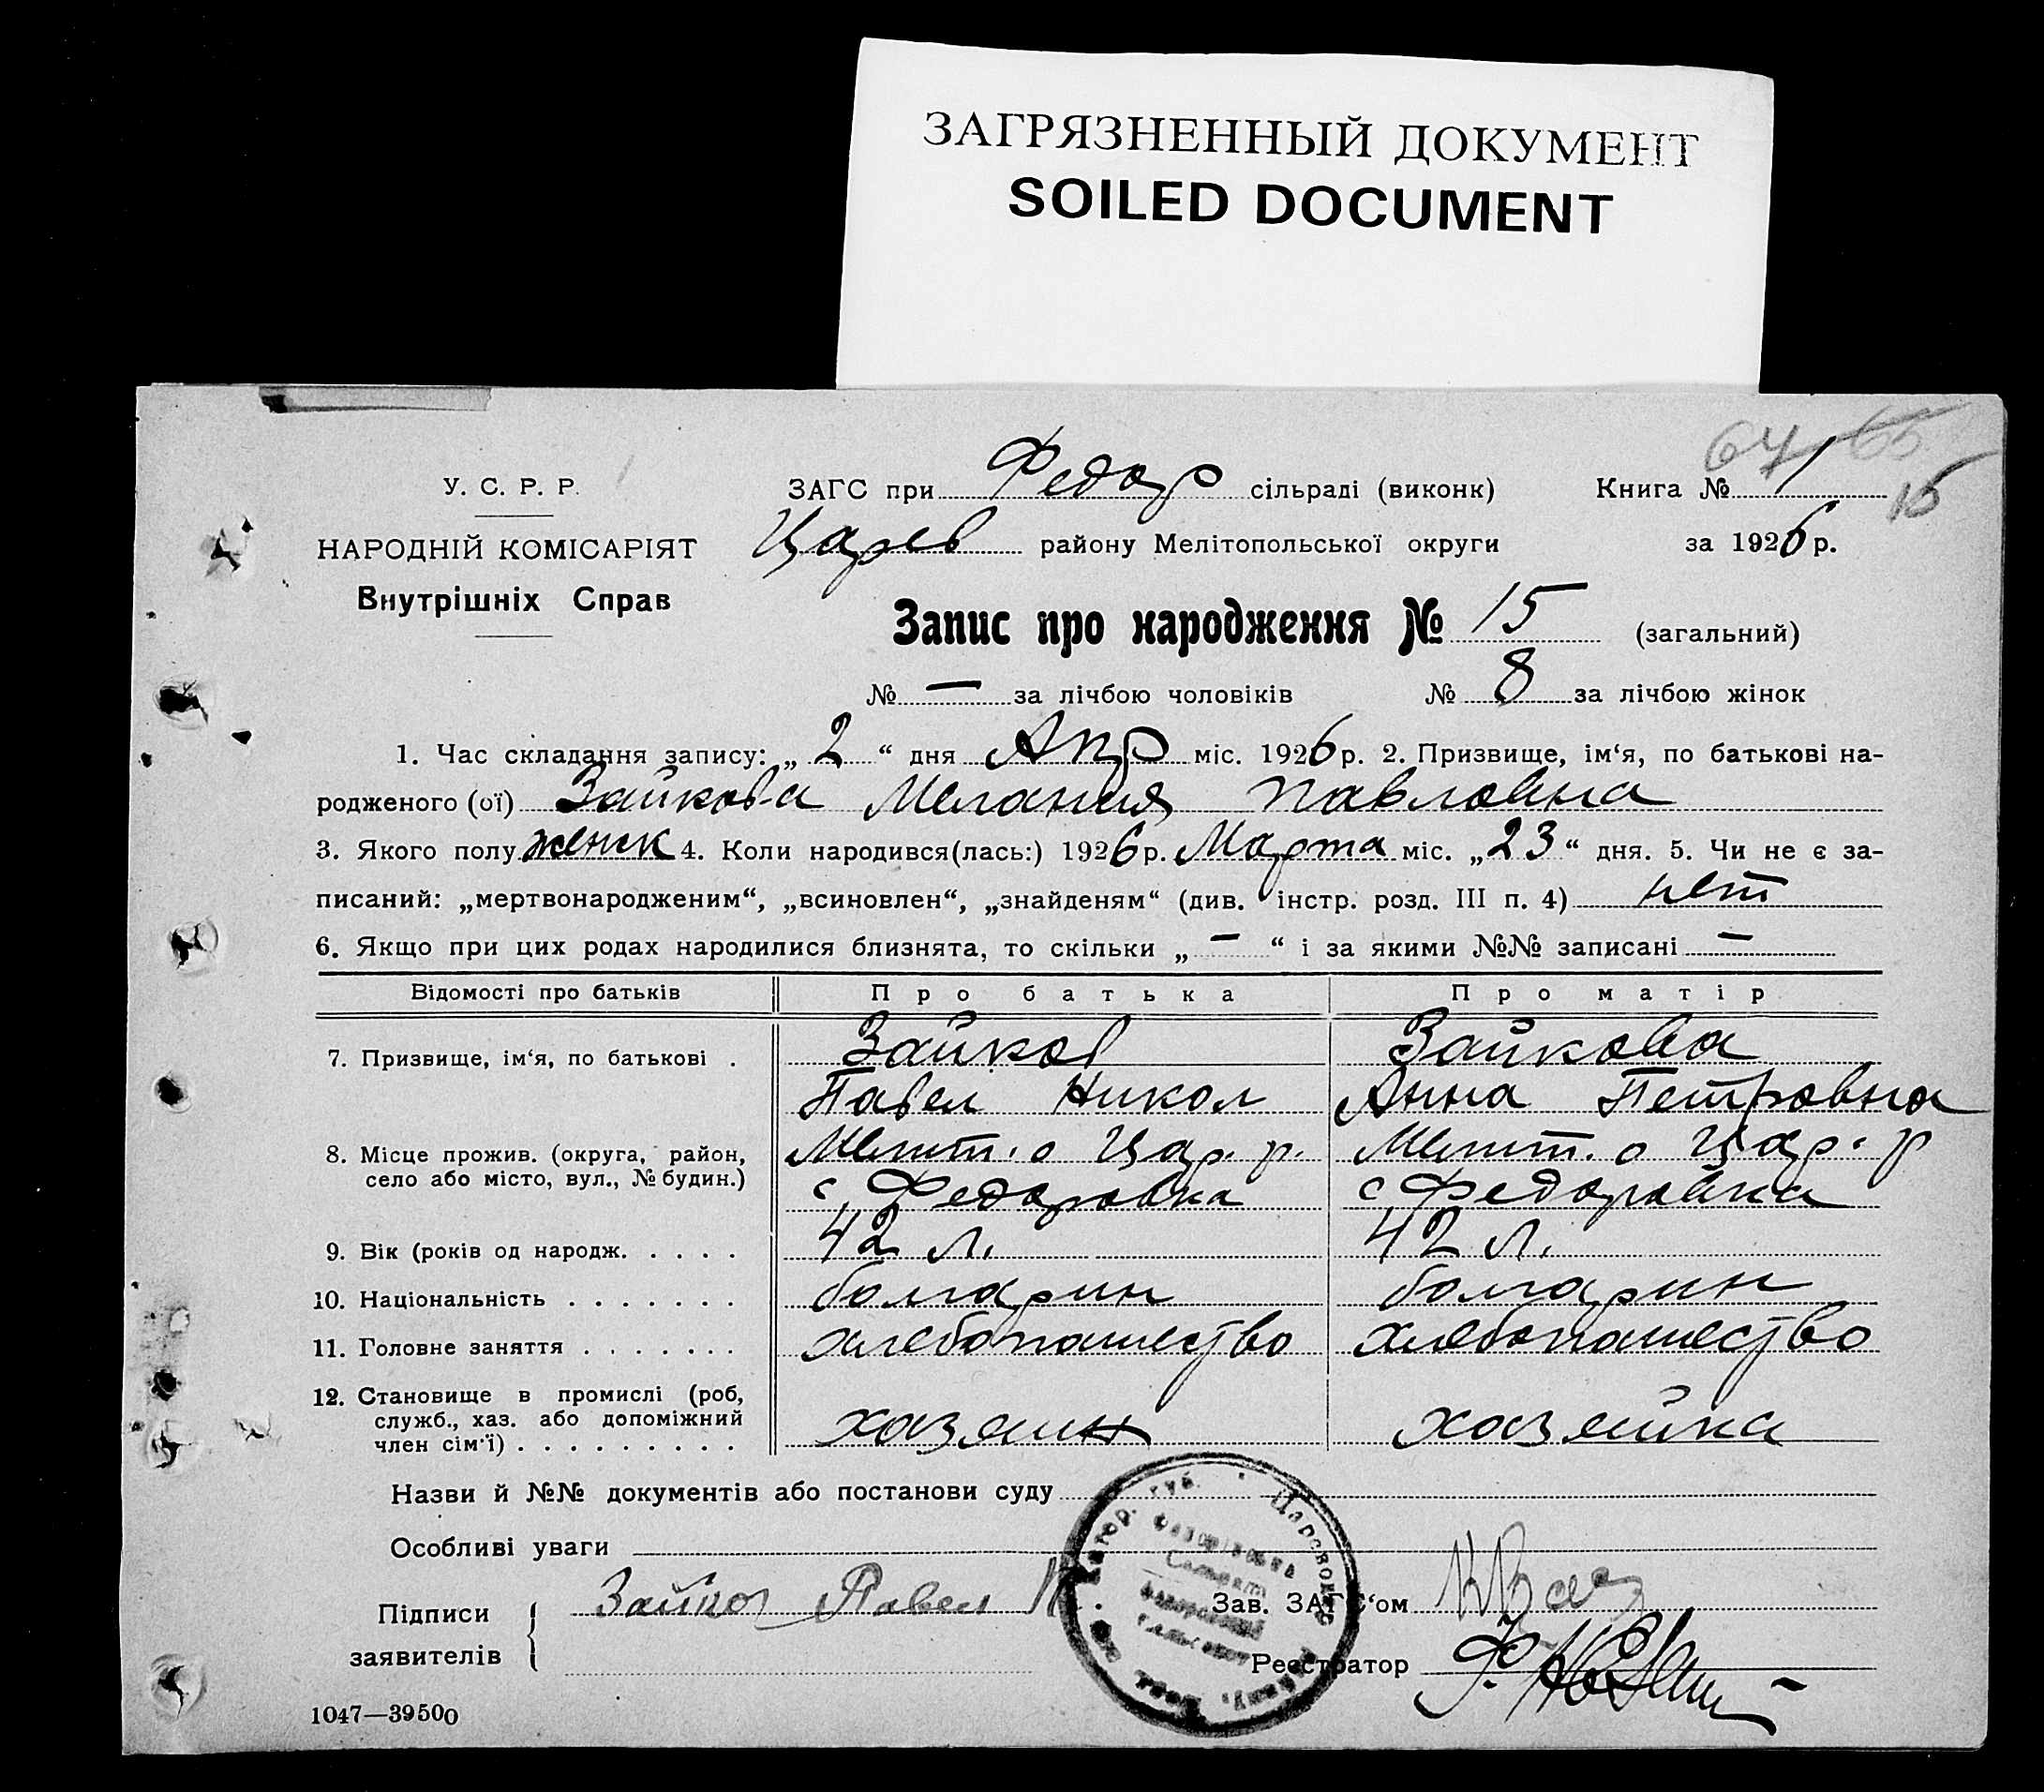 ЗАГРЯЗНЕННЫЙ ДОКУМЕНТ
SOILED DOCUMENT
64 65
У. С. Р. Р. ЗАГС при Федор сільраді (виконк) Книга № 1
15
НАРОДНІЙ КОМІСАРІЯТ Царев району Мелітопольської округи за 1926 р.
Внутрішніх Справ
Запис про народження № 15 (загальний)
№ — за лічбою чоловіків № 8 за лічбою жінок
1. Час складання запису: „ 2 “ дня Апр міс. 1926 р. 2. Призвище, ім‘я, по батькові на-
родженого (ої) Зайкова Мелания Павловна
3. Якого полу женск 4. Коли народився(лась:) 1926 р. Марта міс. „23“ дня. 5. Чи не є за-
писаний: „мертвонародженим“, „всиновлен“, „знайденям“ (див. інстр. розд. III п. 4) нет
6. Якщо при цих родах народилися близнята, то скільки „ — “ і за якими №№ записані —
Відомості про батьків Про батька Про матір
7. Призвище, ім‘я, по батькові . Зайков Зайкова
Павел Никол Анна Петровна
8. Місце прожив. (округа, район, Мелит. о Цар. р. Мелит. о Цар. р
село або місто, вул., № будин.) с Федоровка с Федоровка
9. Вік (років од народж. . . . . 42 л. 42 л.
10. Національність . . . . . . . болгарин болгарин
11. Головне заняття . . . . . . . хлебопашество хлебопашество
12. Становище в промислі (роб,
служб., хаз. або допоміжний хазяин хазяйка
член сім‘ї) . . . . . . . . .
Назви й №№ документів або постанови суду
Особливі уваги
Підписи Зайков Павел Н. Зав. ЗАГС‘ом
заявителів Реєстратор
1047—39500